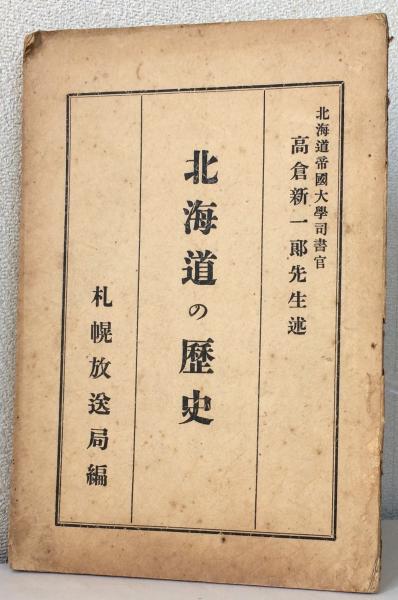 北海道帝國大學司書官
高倉新一郞先生述
北海道の歷史
札幌放送局編